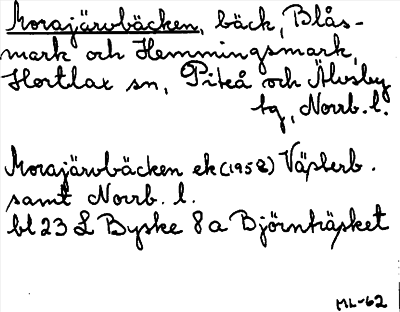 Morajärvbäcken, bäck, Blås-
mark och Hemmingsmark,
Hortlax sn, Piteå och Älvsby
tg, Norrb. l.
Morajärvbäcken ek (1958) Västerb.
samt Norrb. l.
bl 23 L Byske 8a Björnträsket
ML-62